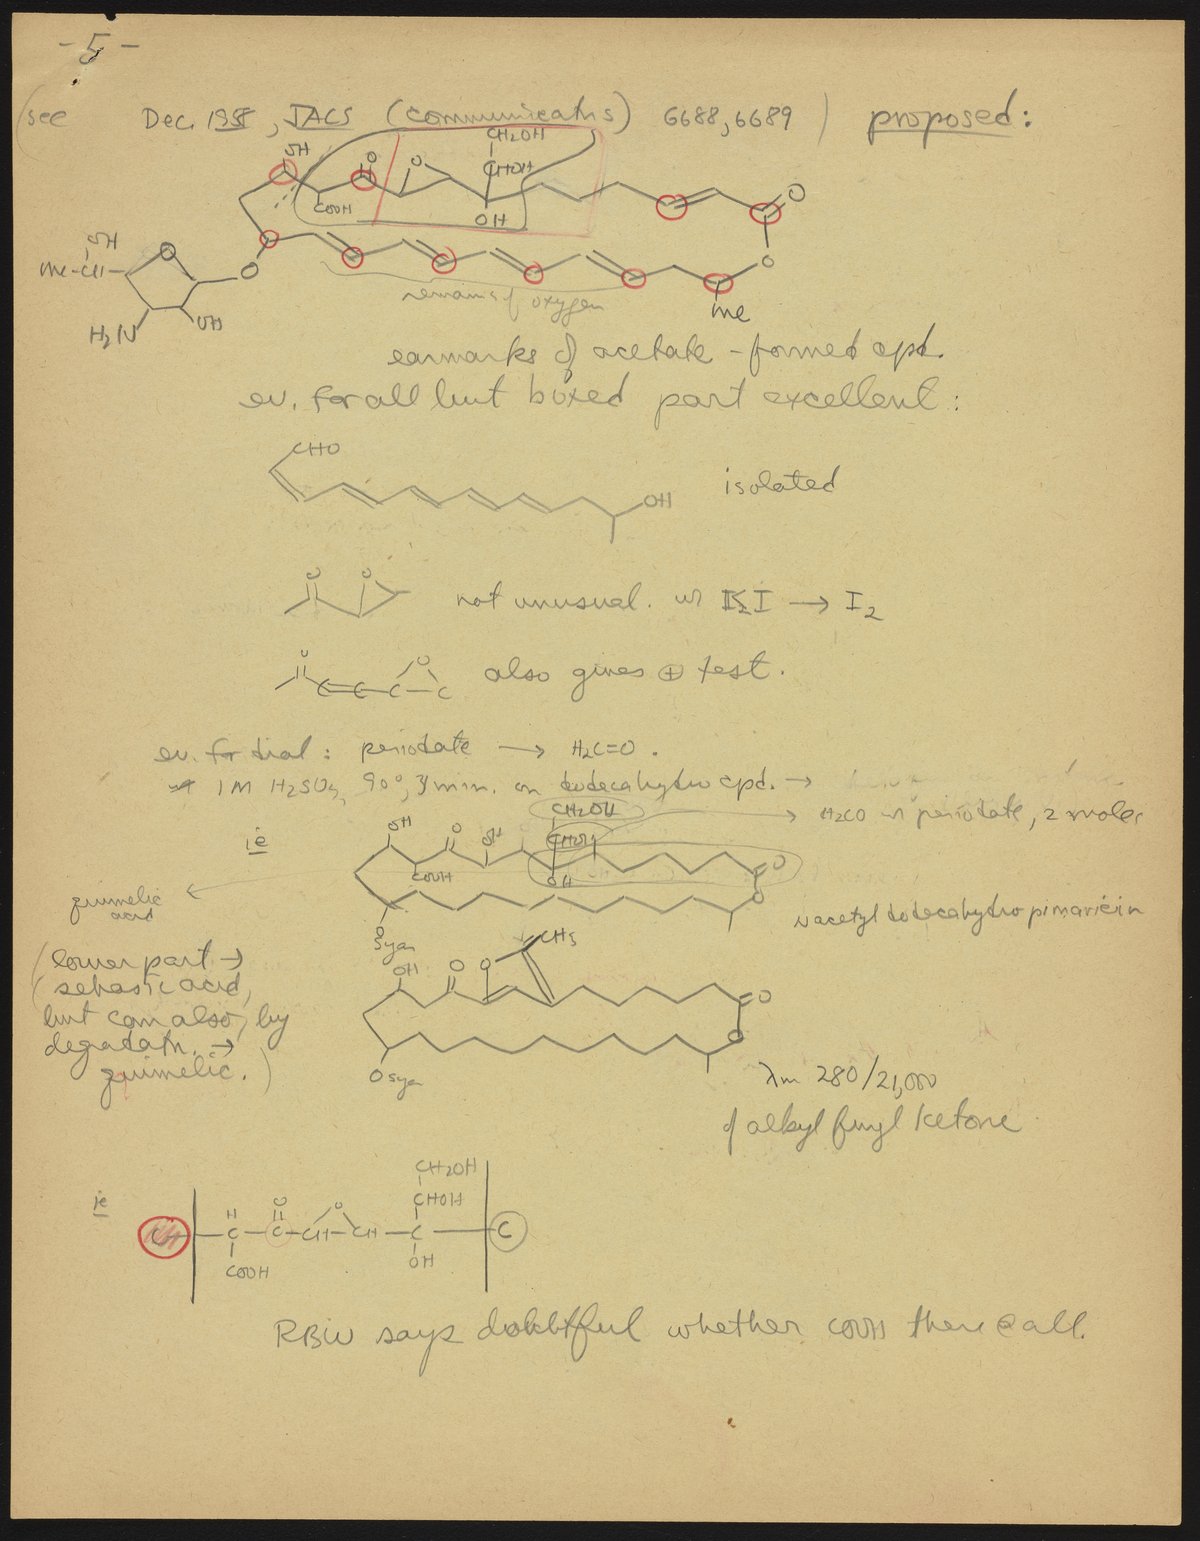 - 5 -
(see Dec. 1958, JACS (communicatns) 6688, 6689) proposed:
OH
O
O
CH2OH
CHOH
COOH
OH
O
OH
Me-CH-
O
O
O
H2N
OH
remains of oxygen
Me
earmarks of acetate-formed cpd.
ev. for all but boxed part excellent:
CHO
OH
isolated
O
O
not unusual. w KI → I2
O
O
C=C-C-C
also gives ⊕ test.
ev. for trial: periodate → H2C=O.
1M H2SO4, 90°, 3 min. on dodecahydro cpd. →
CH2OH
→ H2CO w periodate, 2 moles
ie
OH
O
OH
CHOH
COOH
OH
O
O
pimelic acid
O
Sugar
N acetyl dodecahydro pimaricin
(lower part →
(sebasic acid,
but can also, by
degradatn. →
pimelic.)
CH3
OH
O
O
O
O
O Sugar
λm 280/21,000
of alkyl furyl ketone
CH2OH
ie
H
O
O
CHOH
CH
-C-C-CH-CH-C-
C
COOH
OH
RBW says doubtful whether COOH there @ all.